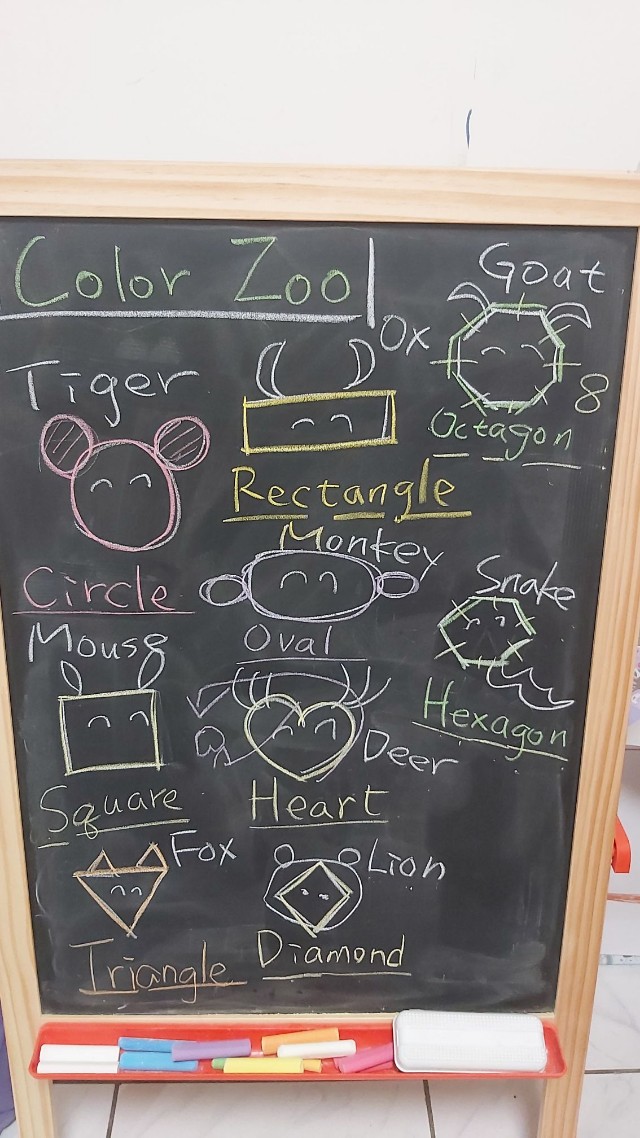 Color Zoo
Goat
Ox
Tiger
8
Octagon
Rectangle
Monkey
Circle
Snake
Mouse
Oval
Hexagon
Deer
Square
Heart
Fox
Lion
Triangle
Diamond